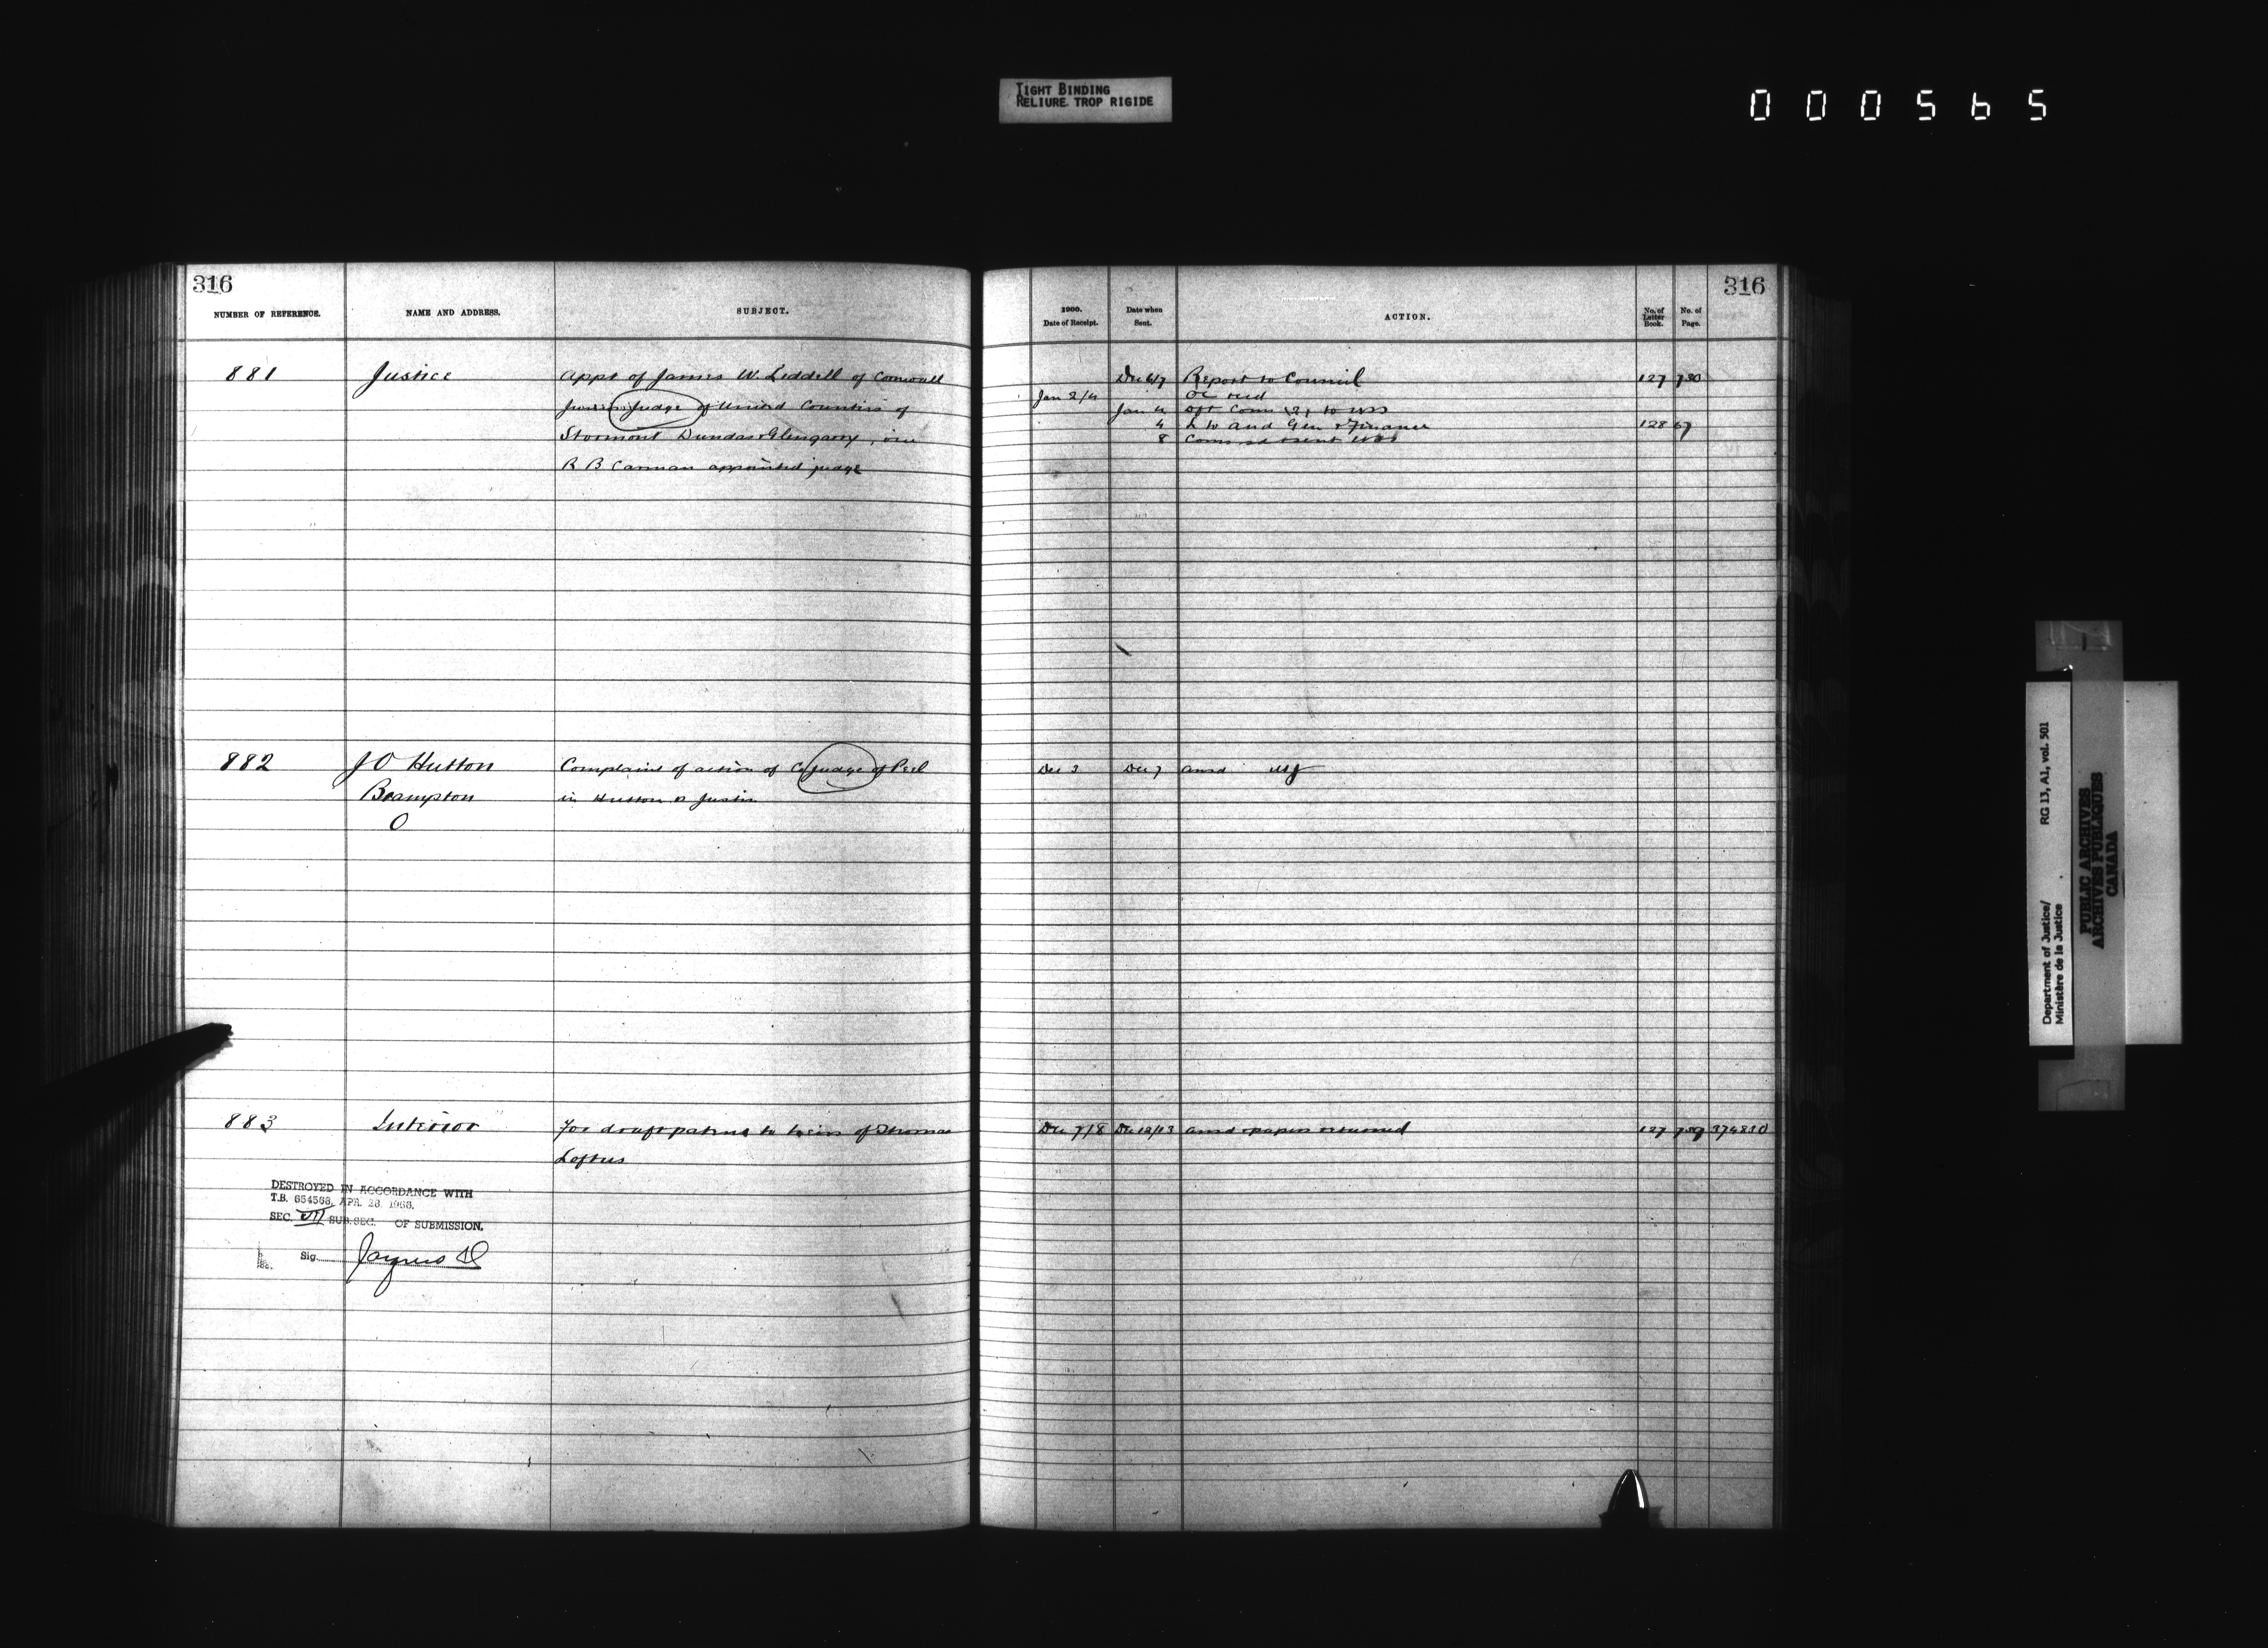 TIGHT BINDING
RELIURE TROP RIGIDE
000565
316
NUMBER OF REFERENCE.
NAME AND ADDRESS.
SUBJECT.
881
Justice
Appt of James W. Liddell of Cornwall
Junior Judge of United Counties of
Stormont Dundas & Glengarry, vice
R B Carman appointed judge
882
J O Hutton
Brampton
O
Complaint of action of Co Judge of Peel
in Hutton v Justin
883
Interior
For draft patent to heirs of Thomas
Loftus
DESTROYED IN ACCORDANCE WITH
T.B. 654568, APR. 28 1968.
SEC. VII SUB. SEC. OF SUBMISSION.
Sig.
316
1900.
Date of Receipt.
Date when
Sent.
ACTION.
No. of
Letter
Book.
No. of
Page.
Dec 6/7 Report to Council 127 730
Jan 2/4 OC recd
Jan 4
4 L to Aud Gen & Finance 128 67
8
Dec 3 Dec 7 ansd
Dec 7/8 Dec 12/13 ansd & papers returned 127 789 374830
Department of Justice/
Ministère de la Justice
RG 13, A1, vol. 501
PUBLIC ARCHIVES
ARCHIVES PUBLIQUES
CANADA